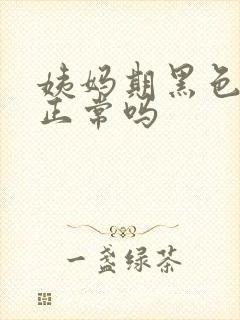 姨妈期黑色
正常吗
一盏绿茶